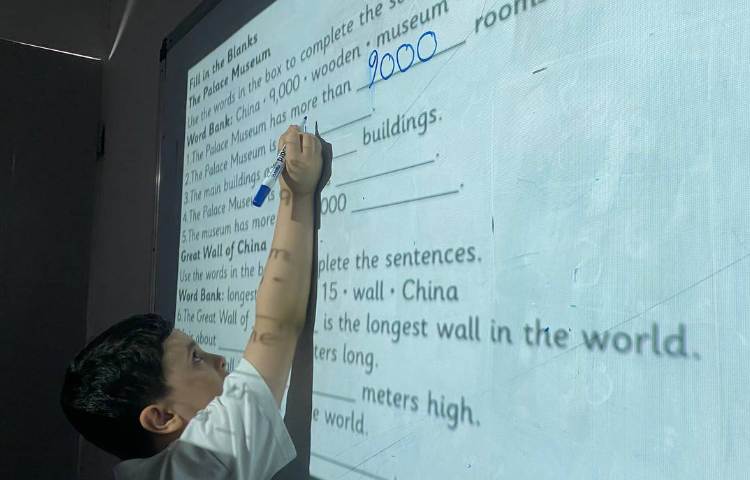 Fill in the Blanks
The Palace Museum
Use the words in the box to complete the
Word Bank: China · 9,000 · wooden · museum
1.The Palace Museum has more than 9000 rooms
2.The Palace Museum is
3.The main buildings buildings.
4.The Palace Museum is
5.The museum has more 000
Great Wall of China
Use the words in the plete the sentences.
Word Bank: longest 15 · wall · China
6.The Great Wall of is the longest wall in the world.
about ters long.
meters high.
e world.